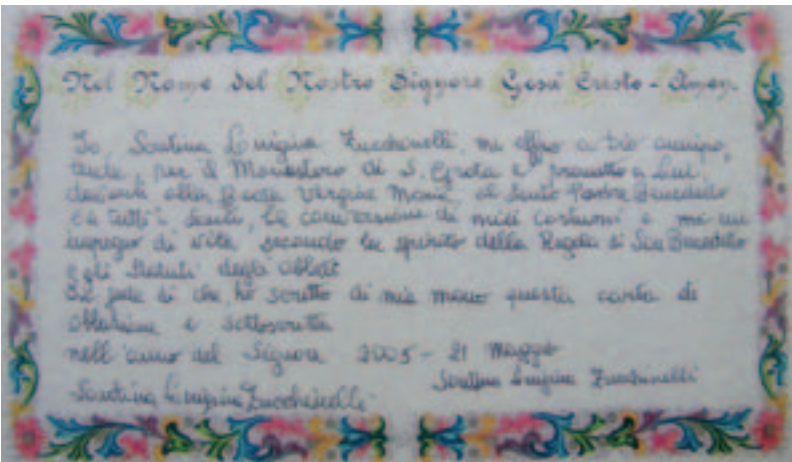 Nel Nome del Nostro Signore Gesù Cristo - Amen.
Io Santina Luigina Zucchinelli, mi offro a Dio onnipo,
tente, per il Monastero di S. Grata e prometto a Lui
davanti alla Beata Vergine Maria, al Santo Padre Benedetto
e a tutti i Santi, la conversione dei miei costumi e mi
impegno di vita secondo lo spirito della Regola di San Benedetto
e gli Statuti degli Oblati
In fede di che ho scritto di mia mano questa carta di
oblazione e sottoscritta
nell'anno del Signore 2005 - 21 Maggio
Santina Luigina Zucchinelli
Santina Luigina Zucchinelli